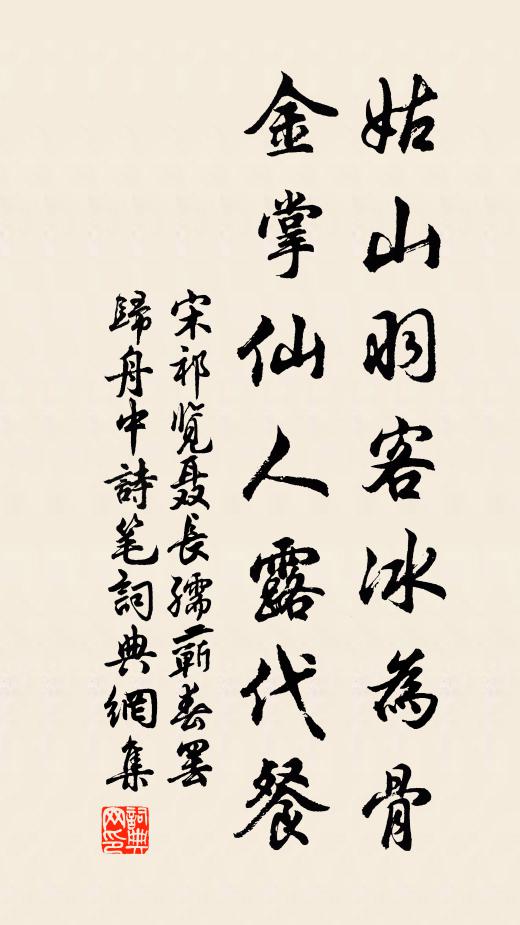 姑山羽客冰為骨
金掌仙人露代餐
宋祁覧聂長孺蕲春罢
歸舟中詩笔詞典網集
詞典
网印